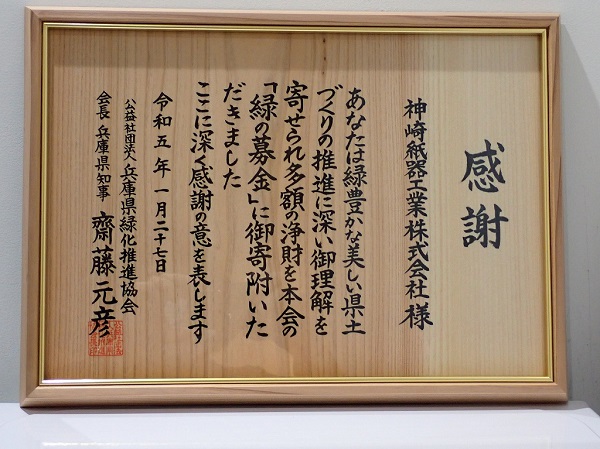 感謝
神崎紙器工業株式会社様
あなたは緑豊かな美しい県土
づくりの推進に深い御理解を
寄せられ多額の浄財を本会の
「緑の募金」に御寄附いた
だきました
ここに深く感謝の意を表します
令和五年一月二十七日
公益社団法人 兵庫県緑化推進協会
会長 兵庫県知事 齋藤元彦